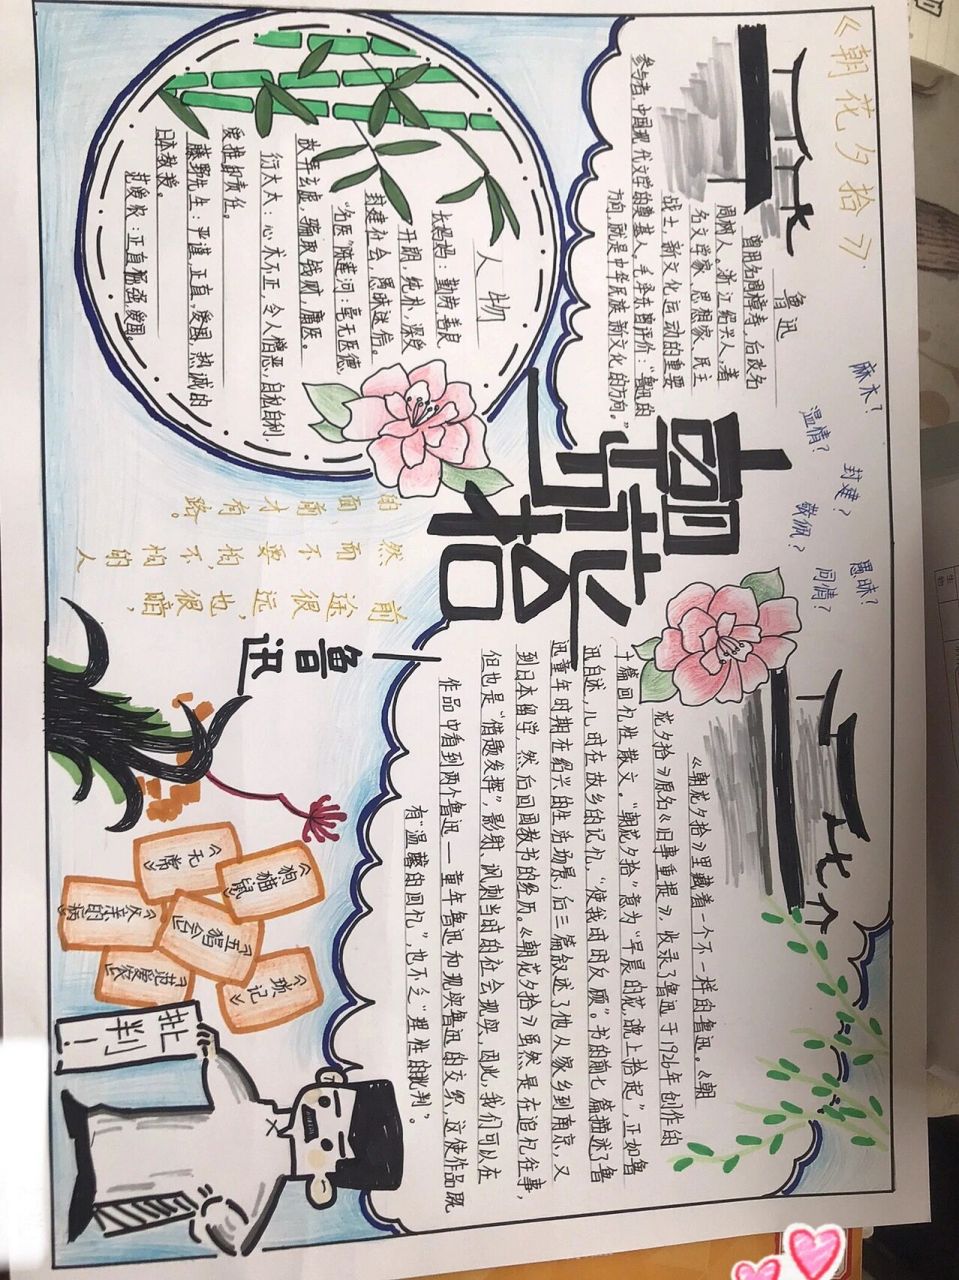 《朝花夕拾》
鲁迅
曾用名周樟寿，后改名
周树人。浙江绍兴人，著
名文学家、思想家、民主
战士，新文化运动的重要
参与者，中国现代文学的奠基人。毛泽东曾评价：“鲁迅的
方向，就是中华民族新文化的方向。”
麻木？
温情？
封建？
敬佩？
愚昧？
同情？
朝花夕拾
鲁迅
人物
长妈妈：勤劳、善良
开朋，纯朴，深受
封建社会，愚昧迷信。
“名医”陈莲河：毫无医德，
故弄玄虚，骗取钱财，庸医。
衍太太：心术不正，令人憎恶、自私自利
爱推卸责任。
藤野先生：严谨、正直，爱国，热诚的
日本教授。
范爱农：正直倔强，爱国。
前途很远，也很暗，
然而不要怕，不怕的人
的面前才有路。
《朝花夕拾》里藏着一个不一样的鲁迅。《朝
花夕拾》原名《旧事重提》，收录了鲁迅于1926年创作的
十篇回忆性散文。“朝花夕拾”意为“早晨的花，晚上拾起”，正如鲁
迅自述，儿时在故乡的记忆，“使我时时反顾”。书的前七篇描述了鲁
迅童年时期在绍兴的生活场景；后三篇叙述了他从家乡到南京，又
到日本留学，然后回国教书的经历。《朝花夕拾》虽然是在追忆往事，
但也是“借题发挥”，影射、讽刺当时的社会现实，因此，我们可以在
作品中看到两个鲁迅——童年鲁迅和现实鲁迅的交织，这使作品既
有“温馨的回忆”，也不乏“理性的批判”。
《狗猫鼠》
《无常》
《五猖会》
《父亲的病》
《琐记》
《范爱农》
批判！